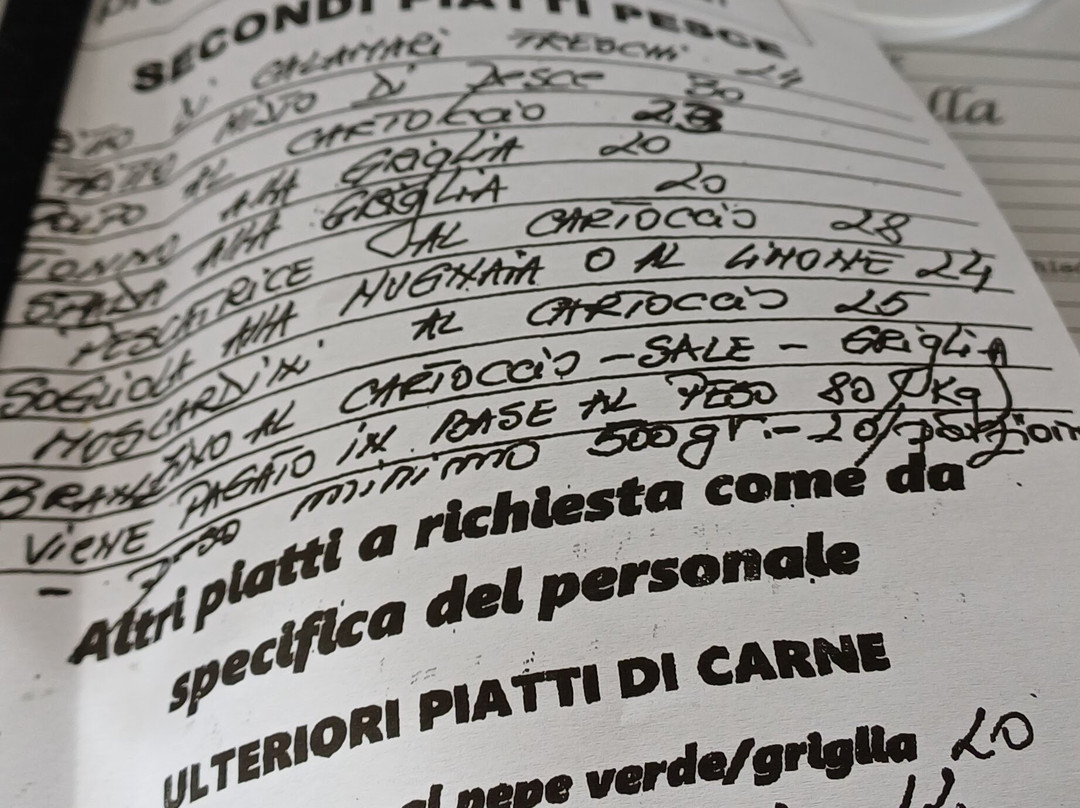 SECONDI PIATTI PESCE
DI CALAMARI FRESCHI 24
MISTO DI PESCE 30
POLPO AL CARTOCCIO 23
TONNO ALLA GRIGLIA 20
SPADA ALLA GRIGLIA 20
PESCATRICE AL CARTOCCIO 28
SOGLIOLA ALLA MUGNAIA O AL LIMONE 24
MOSCARDINI AL CARTOCCIO 25
BRANZINO AL CARTOCCIO - SALE - GRIGLIA
VIENE PAGATO IN BASE AL PESO 80 / Kg
- minimo 500gr. - 20/porzion
Altri piatti a richiesta come da
specifica del personale
ULTERIORI PIATTI DI CARNE
pepe verde/griglia 20
lla